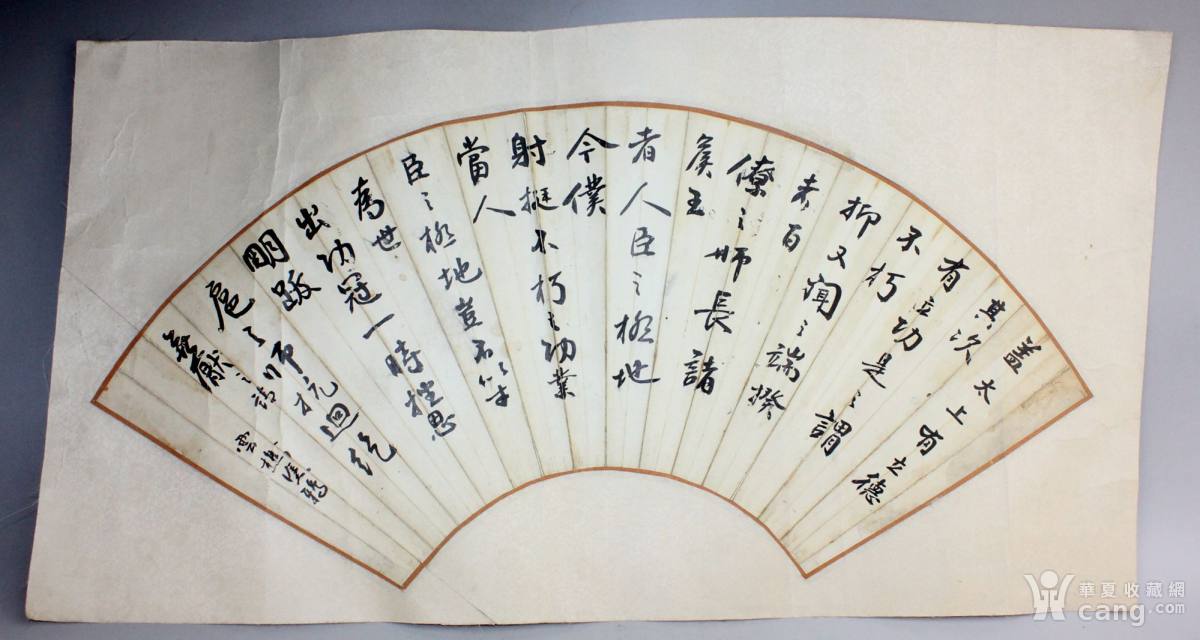 蓋太上有立德
其次
有立功是之謂
不朽
抑又聞之端揆
者百
僚之師長諸
矦王
者人臣之極地
今僕
射挺不朽之功業
當人
臣之極地豈不以才
為世
出功冠一時挫思
明跋
扈之師抗回紇
無厭之請
雲樵
華夏收藏網
cang.com